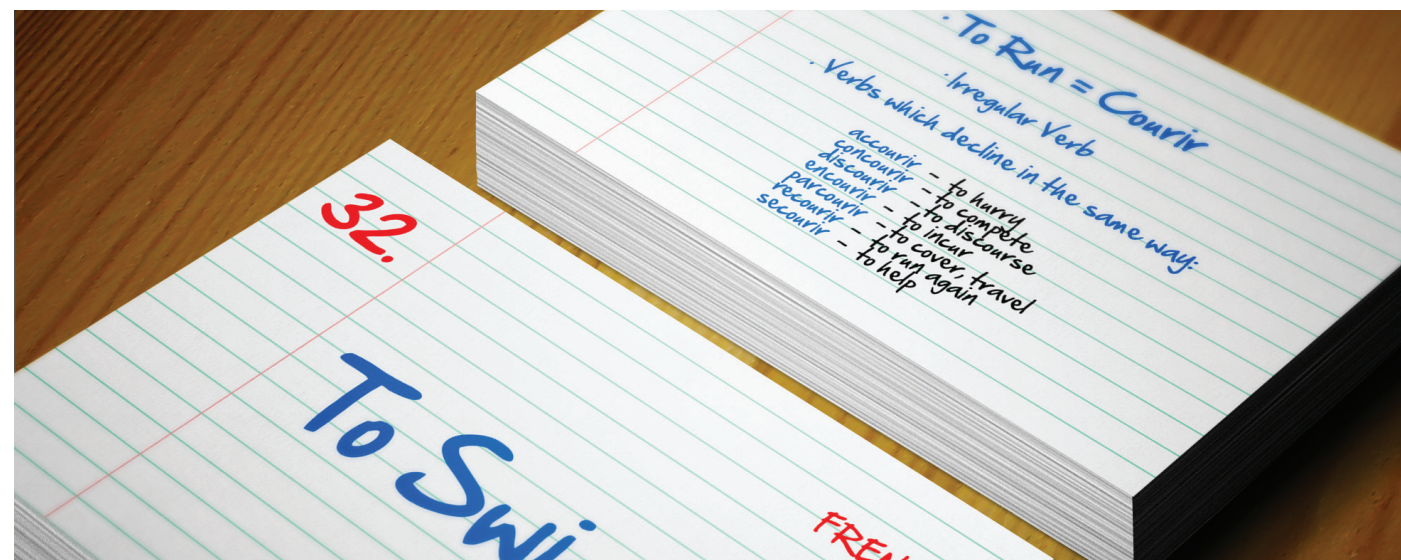 · To Run = Courir
· Irregular Verb
· Verbs which decline in the same way:
accourir - to hurry
concourir - to compete
discourir - to discourse
encourir - to incur
parcourir - to cover, travel
recourir - to run again
secourir - to help
32.
To Swi
FREN